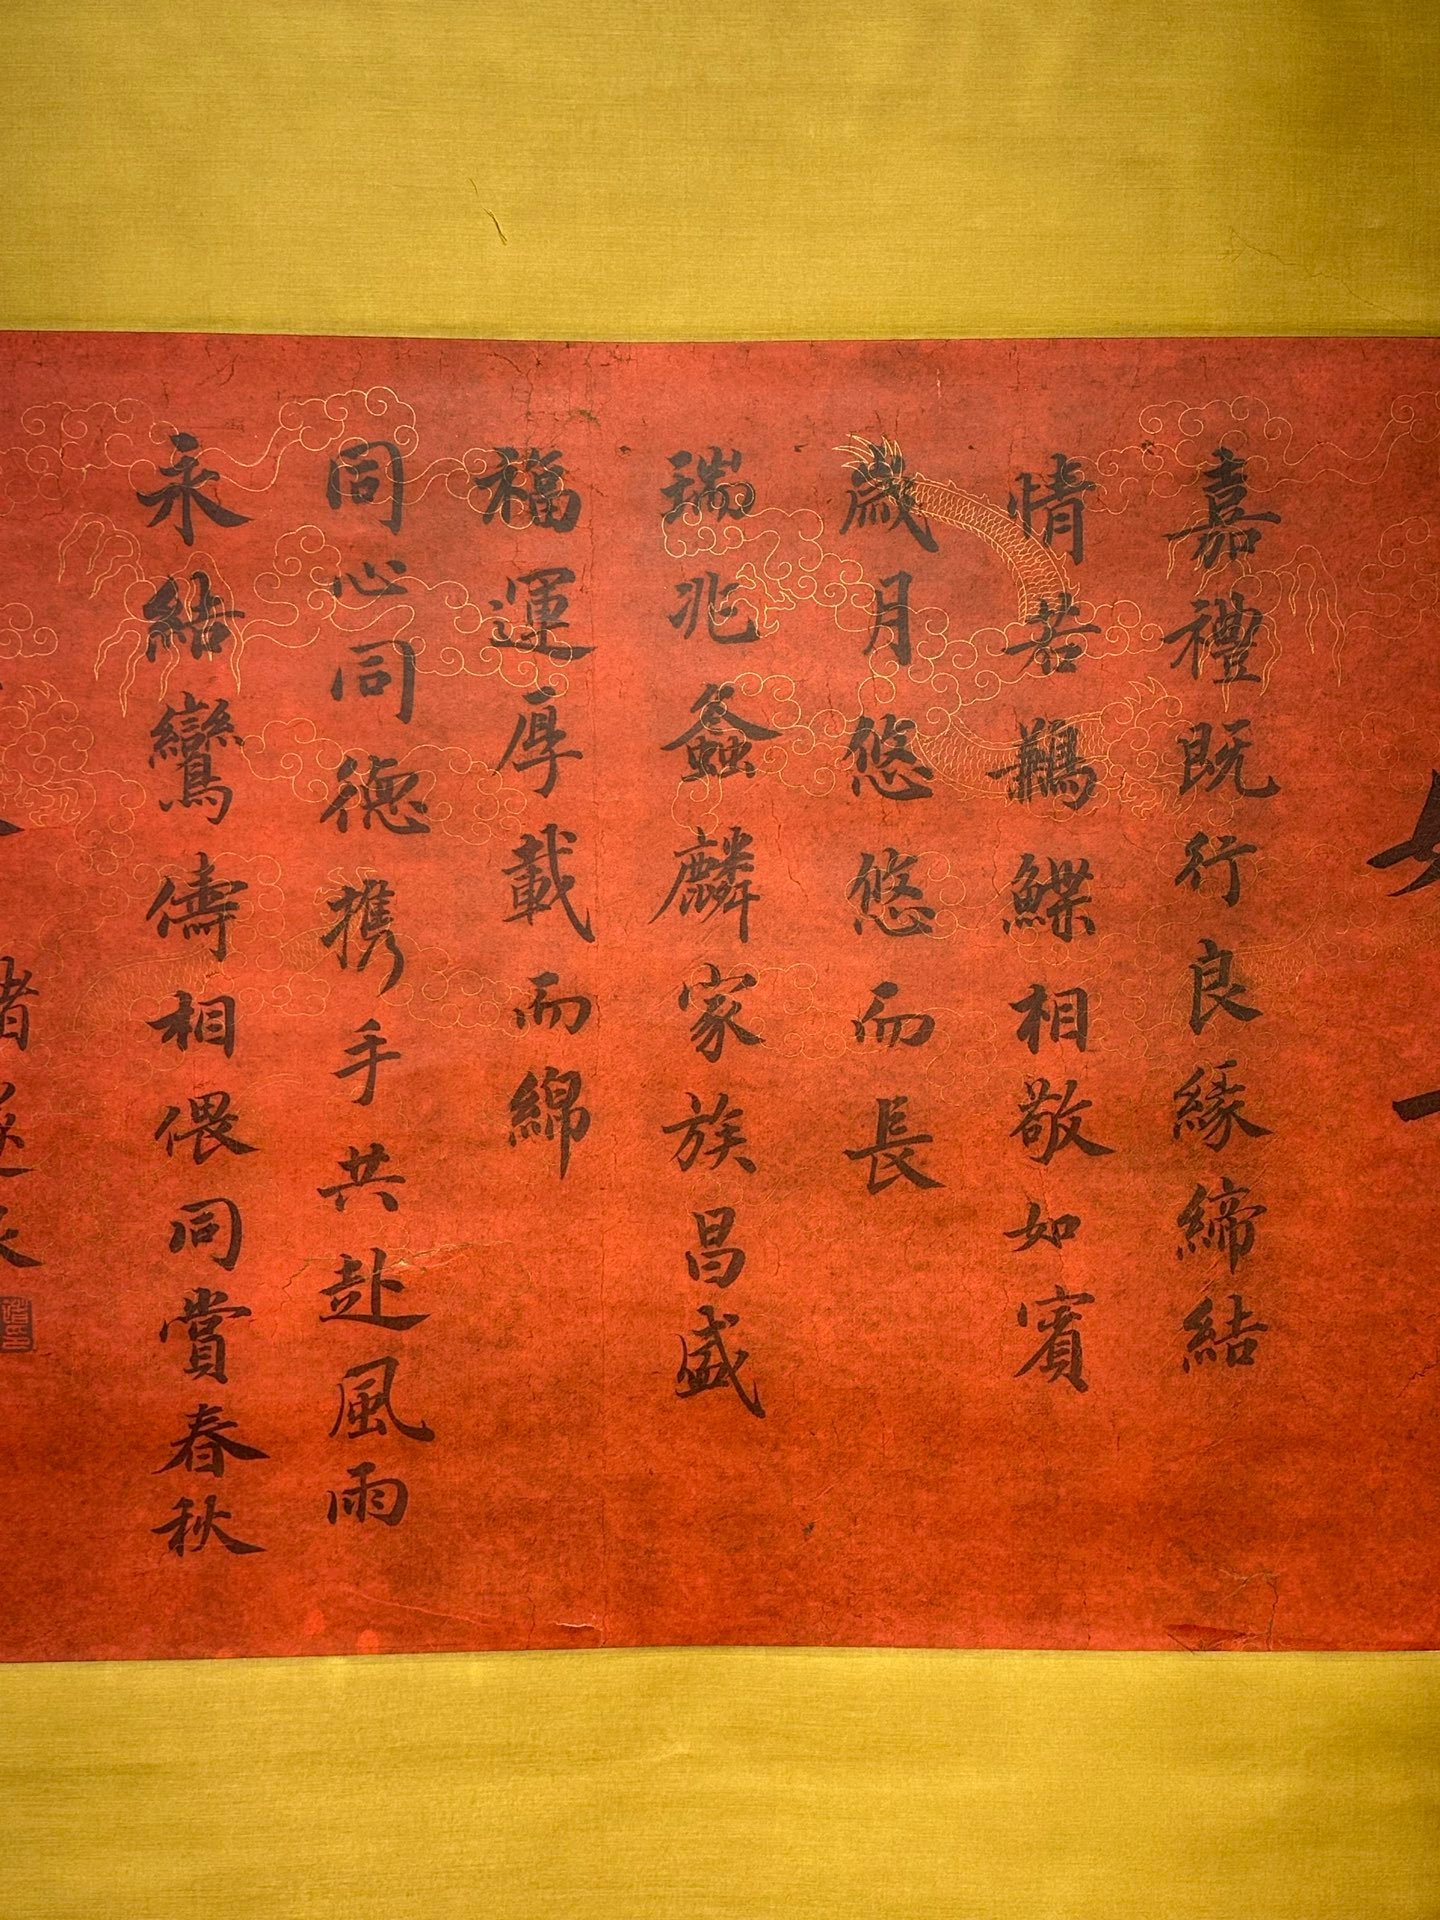 嘉禮既行良緣締結
情若鶼鰈相敬如賓
歲月悠悠而長
瑞兆螽麟家族昌盛
福運厚載而綿
同心同德携手共赴風雨
永結鸞儔相偎同賞春秋
褚遂良